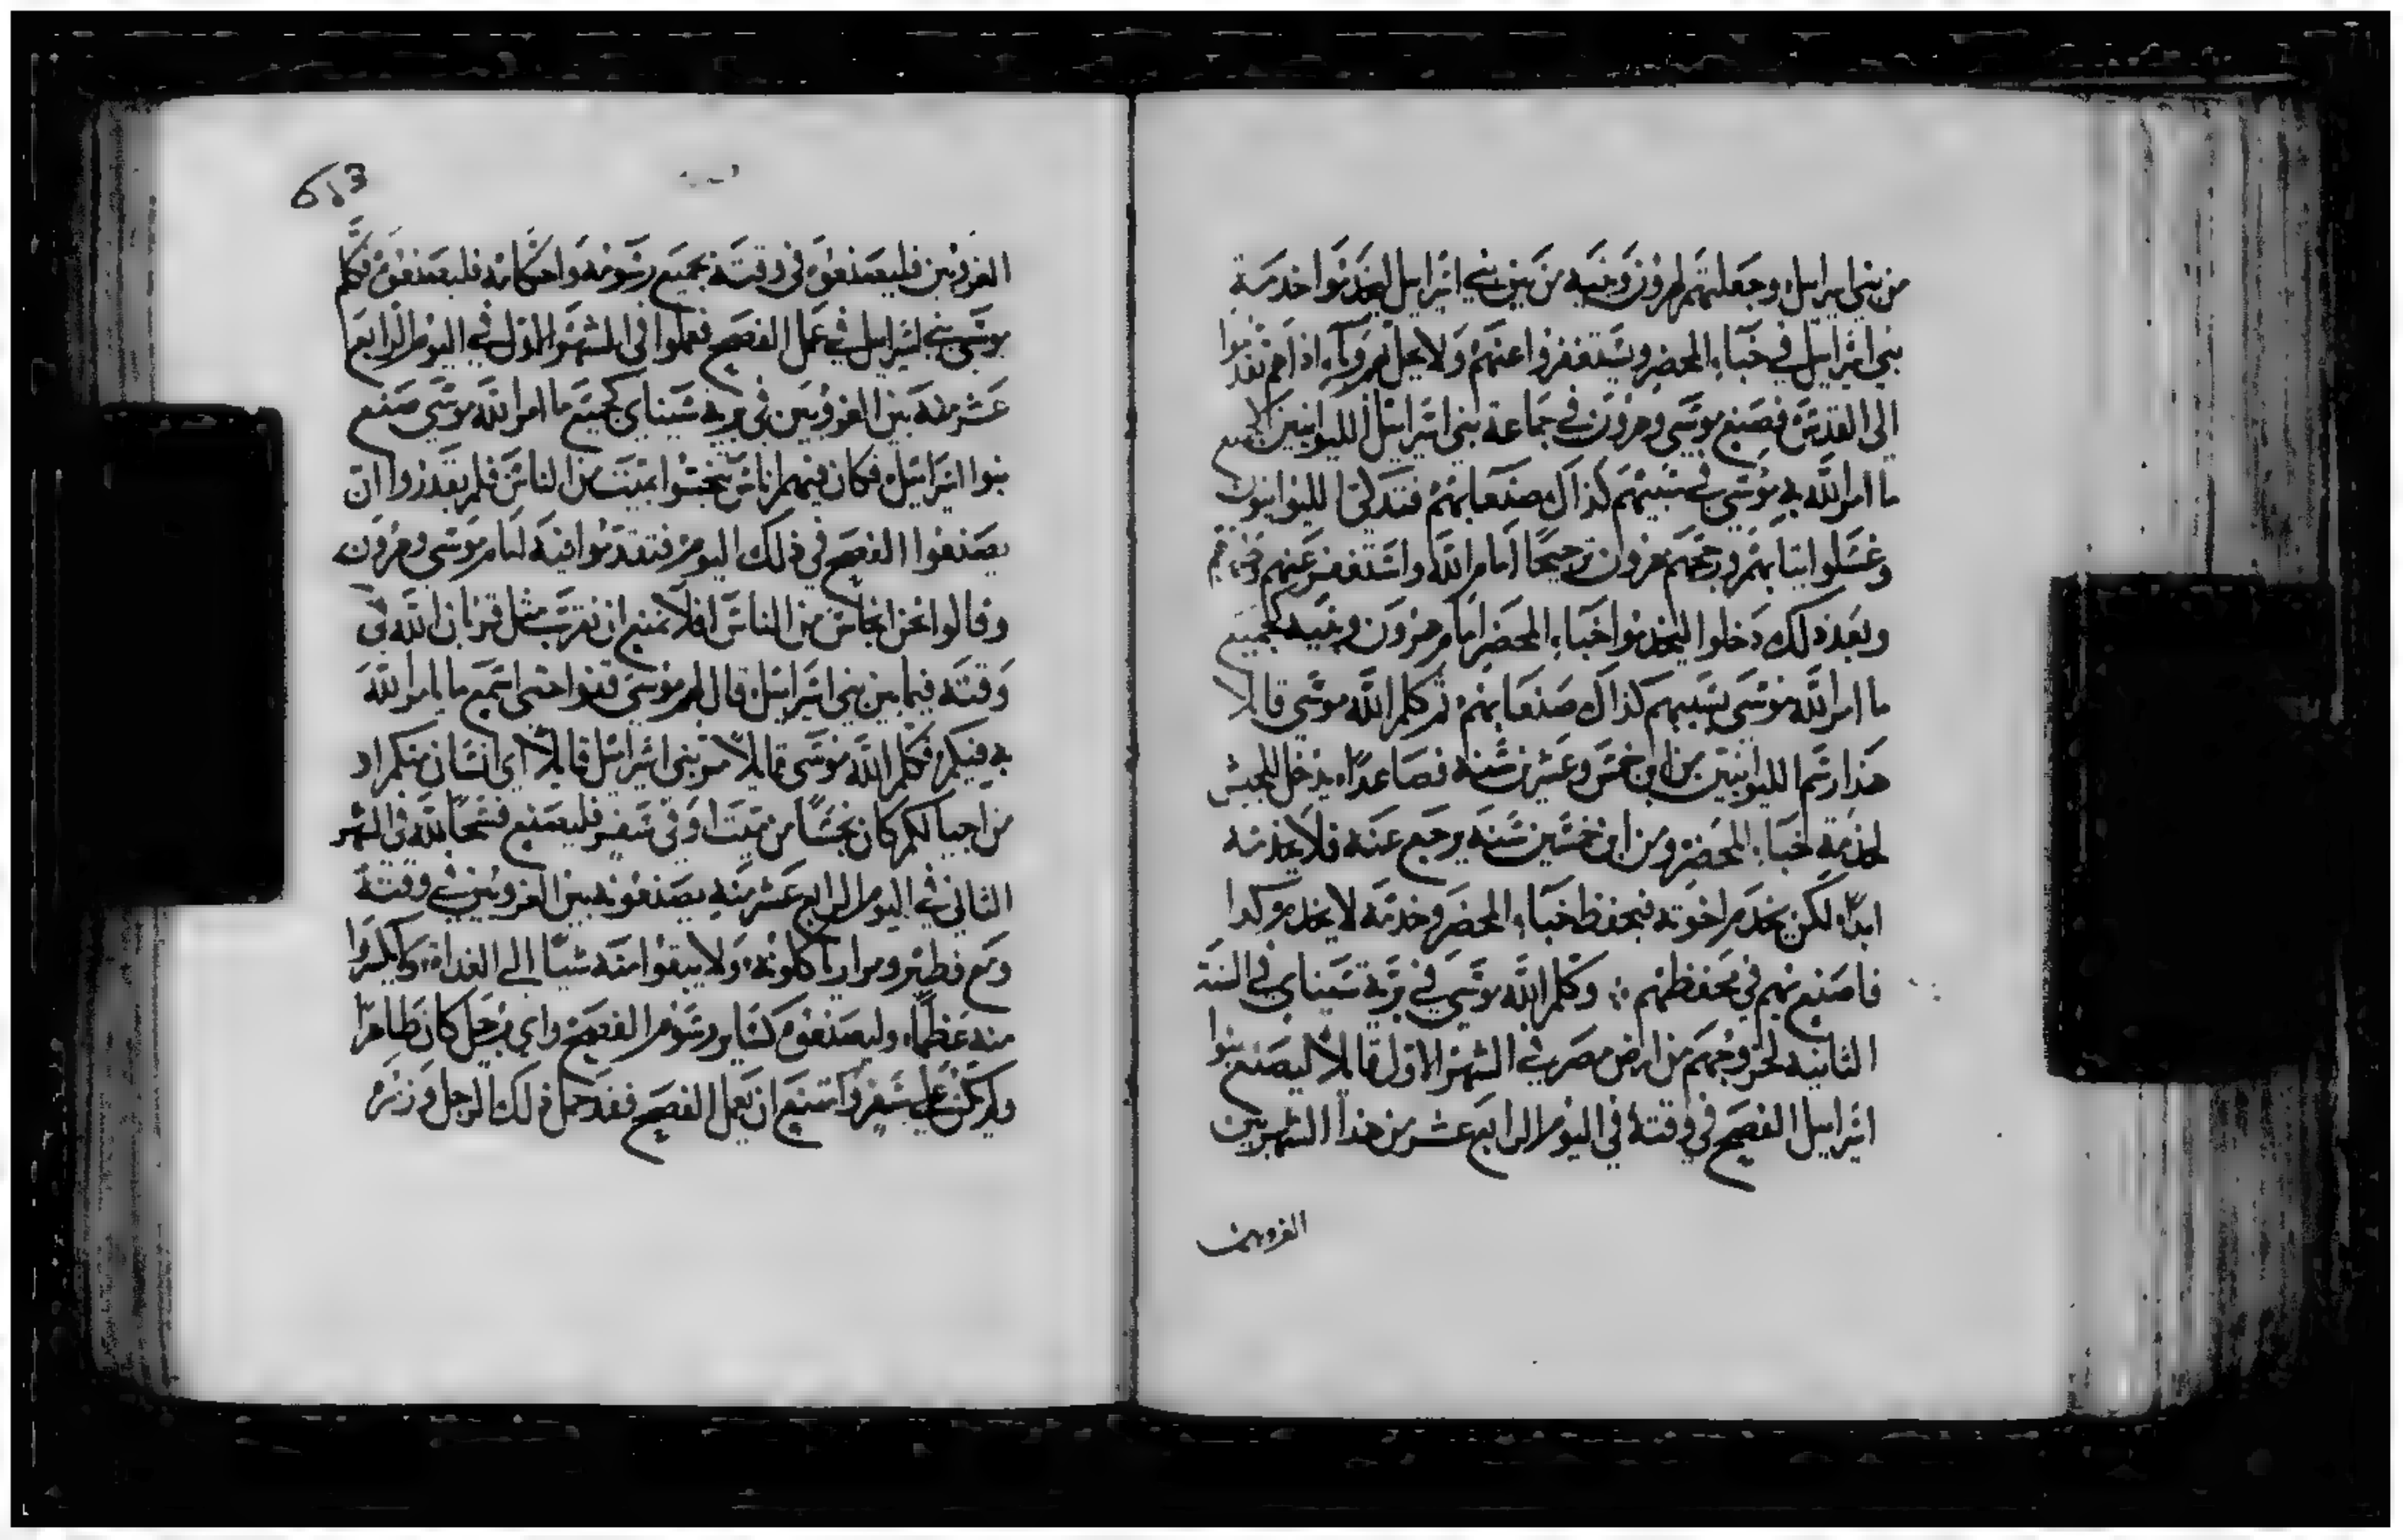 من بني اسراييل وجعلتهم لهرون وبنيه من بين بني اسراييل ليخدموا خدمة
بني اسراييل في خباء المحضر ويستغفروا عنهم ولا يحل بهم وباء اذا هم تقدموا
الى القدس فصنع موسى وهرون في جماعة بني اسراييل لليوانيين كجميع
ما امر الله به موسى في سببهم كذاك صنعا بهم فتدكى الليوانيون
وغسلوا ثيابهم ورجحهم هرون ترجيحا امام الله واستغفر عنهم
وبعد ذلك دخلوا ليخدموا خباء المحضر امام هرون وبنيه كجميع
ما امر الله موسى بسببهم كذاك صنعا بهم ثم كلم الله موسى قايلا
هذا رسم الليوانيين من ابن خمس وعشرين سنة فصاعدا يدخل للجيش
لخدمة خباء المحضر ومن ابن خمسين سنة يرجع عنه فلا يخدمه
ابدا لكن يخدم اخوته فيحفظ خباء المحضر وخدمة لا يخدم وكذا
فاصنع بهم في محفظهم وكلم الله موسى في برية سيناي في السنة
الثانية لخروجهم من ارض مصر في الشهر الاول قايلا ليصنع بنوا
اسراييل الفصح في وقته في اليوم الرابع عشر من هذا الشهر بين
الغروبين
613
الغروبين فليصنعوه في وقته بجميع رسومه واحكامه فليصنعوه فكلم
موسى بني اسراييل في عمل الفصح فعملوا في الشهر الاول في اليوم الرابع
عشر منه بين الغروبين في برية سيناي كجميع ما امر الله موسى صنع
بنوا اسراييل فكان فيهم اناس تنجسوا بميت من الناس فلم يقدروا ان
يصنعوا الفصح في ذلك اليوم فتقدموا فيه امام موسى وهرون
وقالوا نحن انجاس من الناس افلا نمنع ان نقرب مثل قربان الله في
وقته فيما بين بني اسراييل قال لهم موسى قفوا حتى اسمع ما يامر الله
به فيكم فكلم الله موسى قايلا مر بني اسراييل قايلا اي انسان منكم او
من اجيالكم كان نجسا من ميت او في سفر فليصنع فسحا لله في الشهر
الثاني في اليوم الرابع عشر منه يصنعونه بين الغروبين في وقته
ومع فطير ومرار ياكلونه ولا يبقوا منه شيا الى الغداة ولا يكسروا
منه عظما وليصنعوه كساير رسوم الفصح واي رجل كان طاهرا
ولم يكن على سفر وامتنع ان يعمل الفصح فقد حمل ذلك الرجل وزره